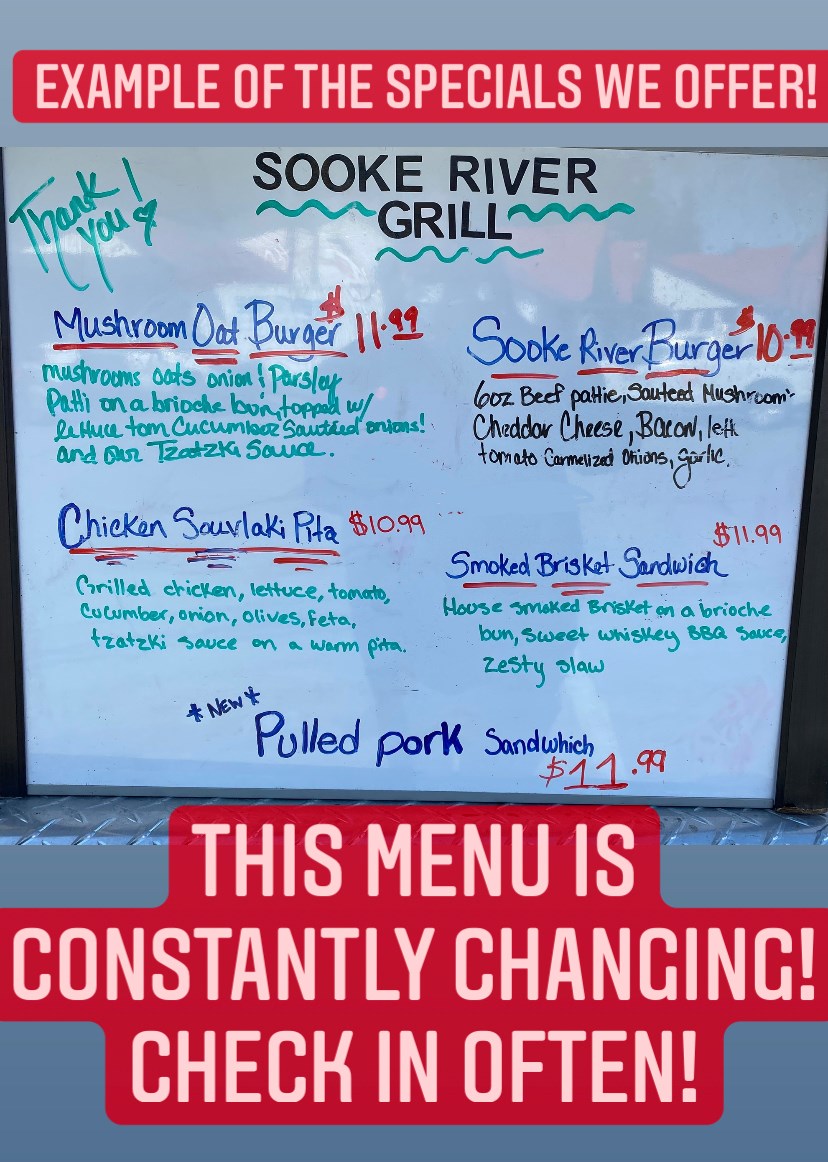 EXAMPLE OF THE SPECIALS WE OFFER!
Thank
you
SOOKE RIVER
GRILL
Mushroom Oat Burger $11.99
mushrooms oats onion & Parsley
Patti on a brioche bun, topped w/
lettuce tom Cucumber Sautéed onions!
and our Tzatzki Sauce.
Sooke River Burger $10.99
6oz Beef pattie, Sauteed Mushroom
Cheddar Cheese, Bacon, lett
tomato Carmelized Onions, garlic.
Chicken Souvlaki Pita $10.99
Grilled chicken, lettuce, tomato,
cucumber, onion, olives, feta,
tzatzki sauce on a warm pita.
$11.99
Smoked Brisket Sandwich
House smoked Brisket on a brioche
bun, sweet whiskey BBQ sauce,
zesty slaw
*NEW*
Pulled pork Sandwhich
$11.99
THIS MENU IS
CONSTANTLY CHANGING!
CHECK IN OFTEN!